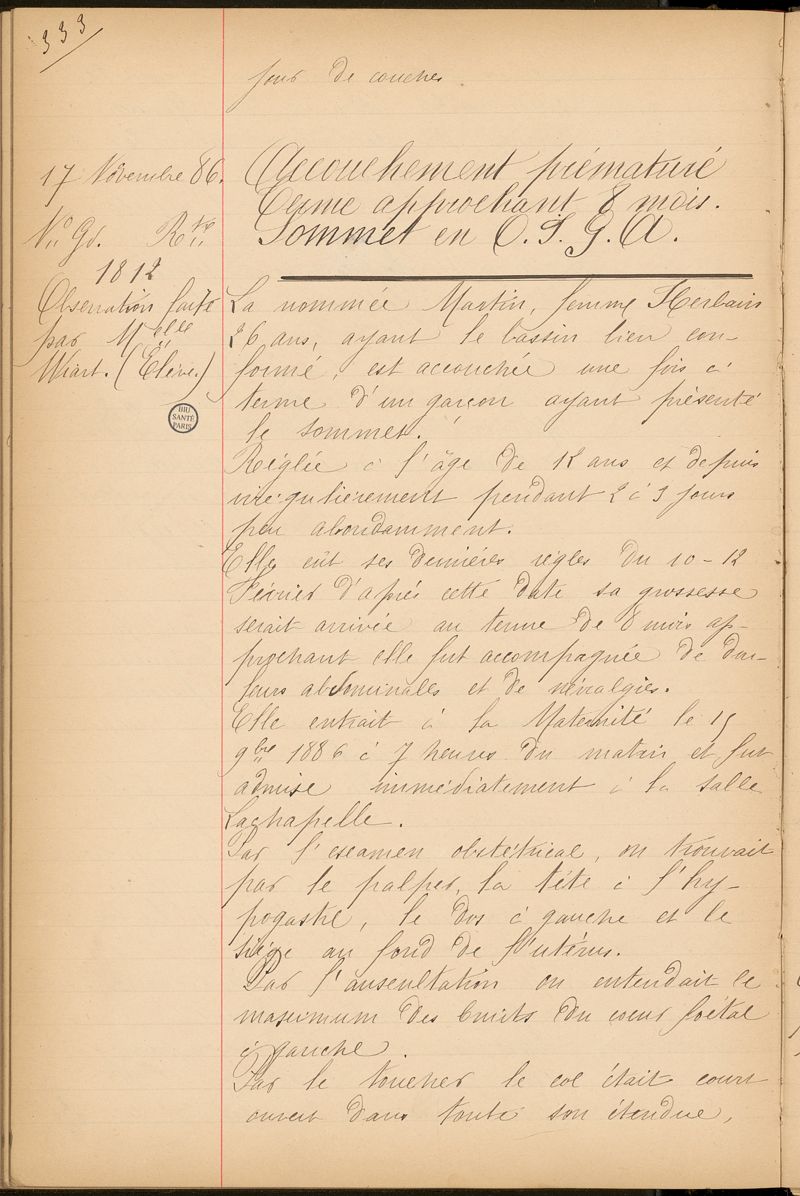 333
jour de couches.
17 Novembre 86.
Nº Gd. Rtre
1812
Observation faite
par Melle
Wiart. (Élève.)
BIU
SANTÉ
PARIS
Accouchement prématuré
Terme approchant 8 mois.
Sommet en O.I.G.A.
La nommée Martin, femme Herbain
26 ans, ayant le bassin bien con-
formé, est accouchée une fois à
terme d'un garçon ayant présenté
le sommet.
Réglée à l'âge de 12 ans et depuis
irrégulièrement pendant 2 à 3 jours
peu abondamment.
Elle eût ses dernières règles du 10-12
Février d'après cette date sa grossesse
serait arrivée au terme de 8 mois ap-
prochant elle fut accompagnée de dou-
leurs abdominales et de névralgies.
Elle entrait à la Maternité le 15
9bre 1886 à 7 heures du matin et fut
admise immédiatement à la salle
Lachapelle.
Par l'examen obstétrical, on trouvait
par le palper, la tête à l'hy-
pogastre, le dos à gauche et le
siège au fond de l'utérus.
Par l'auscultation on entendait le
maximum des bruits du cœur fœtal
à gauche.
Par le toucher le col était court
ouvert dans toute son étendue,